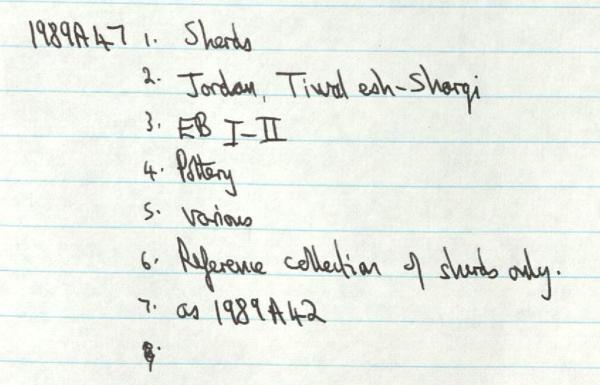 1989A47 1. Sherds
2. Jordan, Tiwal esh-Sharqi
3. EB I-II
4. Pottery
5. various
6. Reference collection of sherds only.
7. as 1989A42
8.